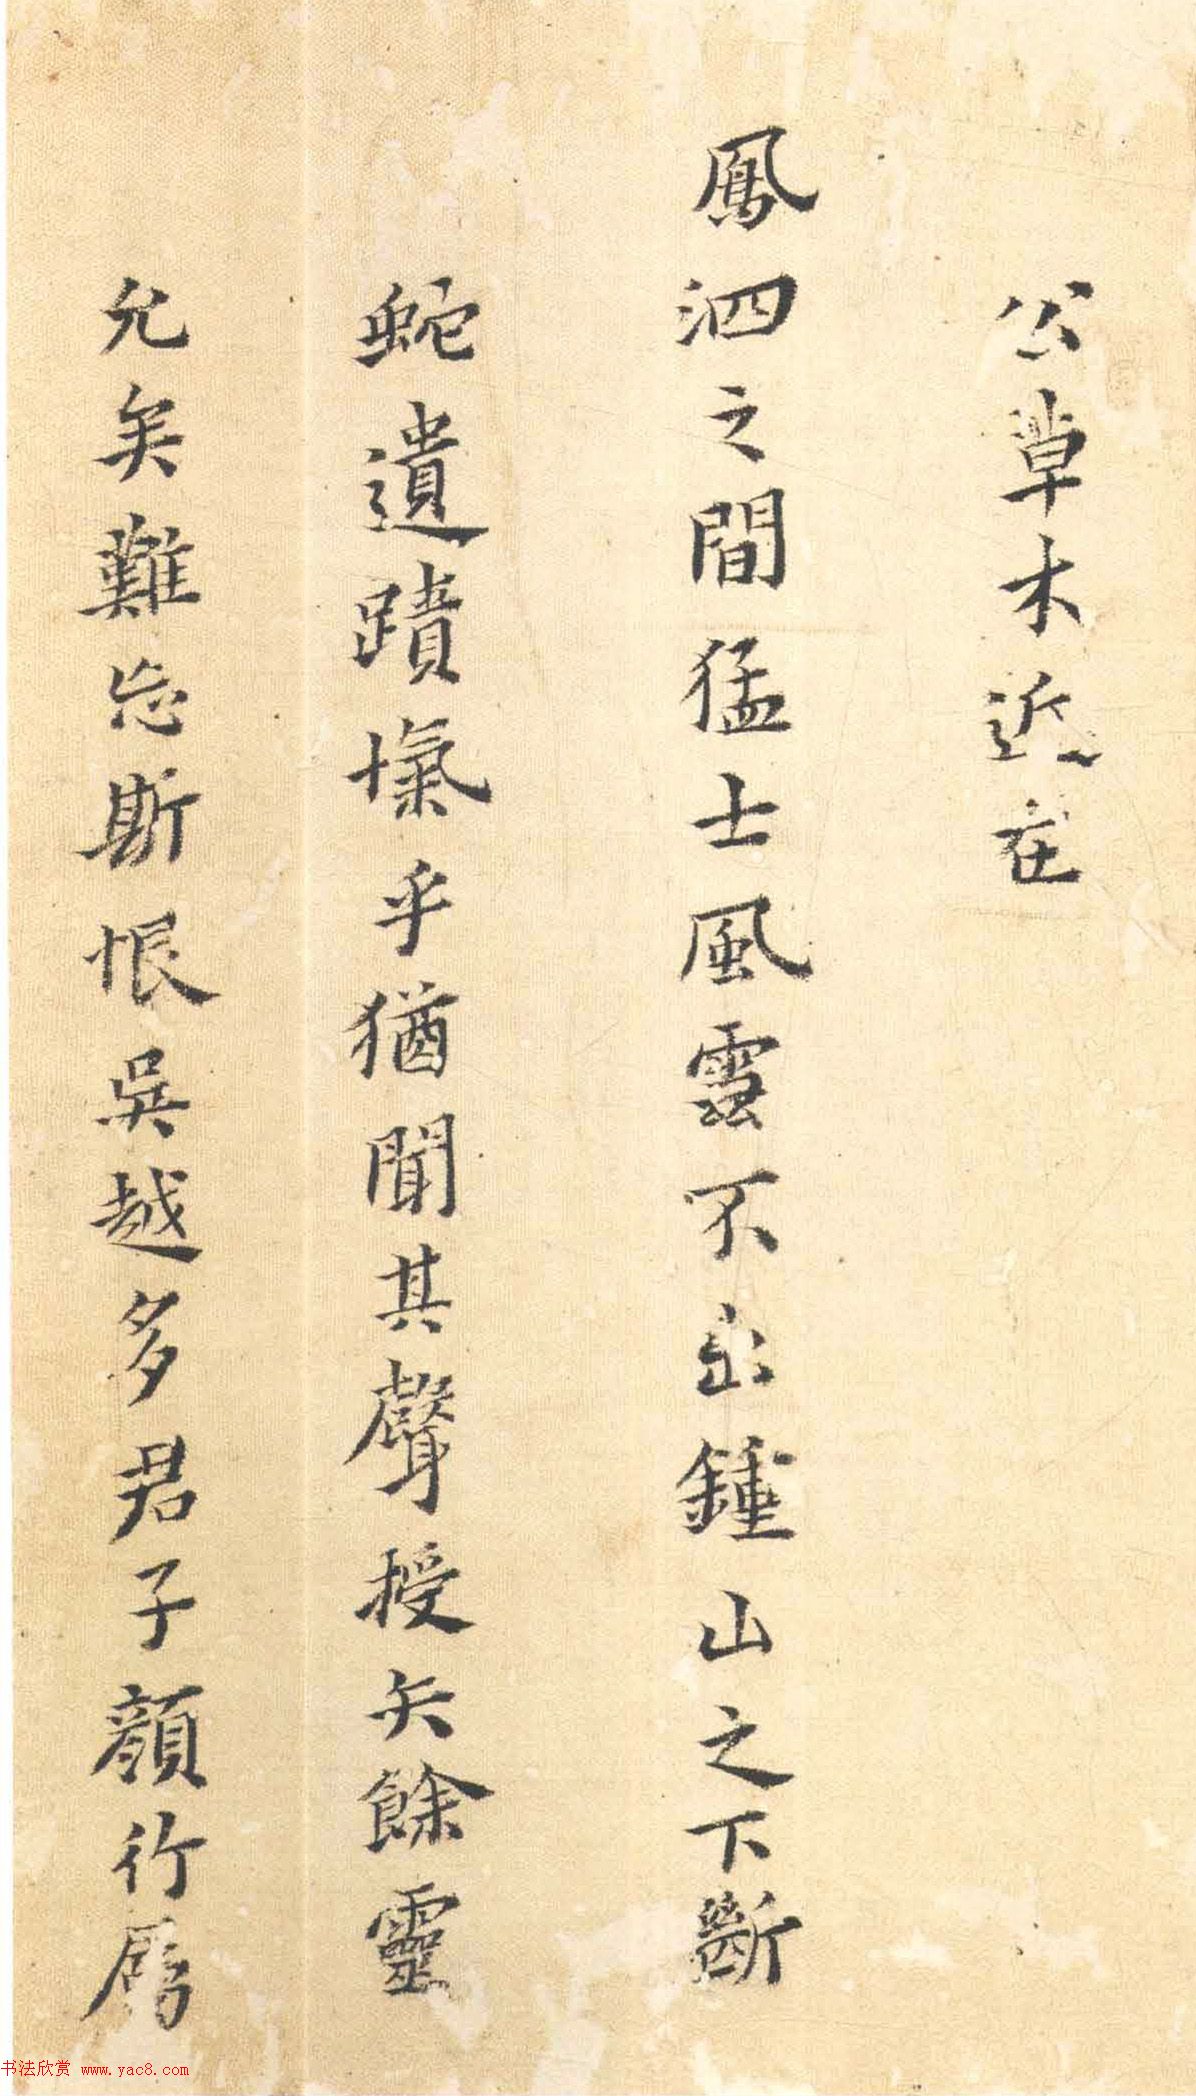 公草木近在
鳳泗之間猛士風雲不出鍾山之下斷
蛇遺蹟愾乎猶聞其聲授矢餘靈
允矣難忘斯恨吳越多君子顏行厲
书法欣赏 www.yac8.com